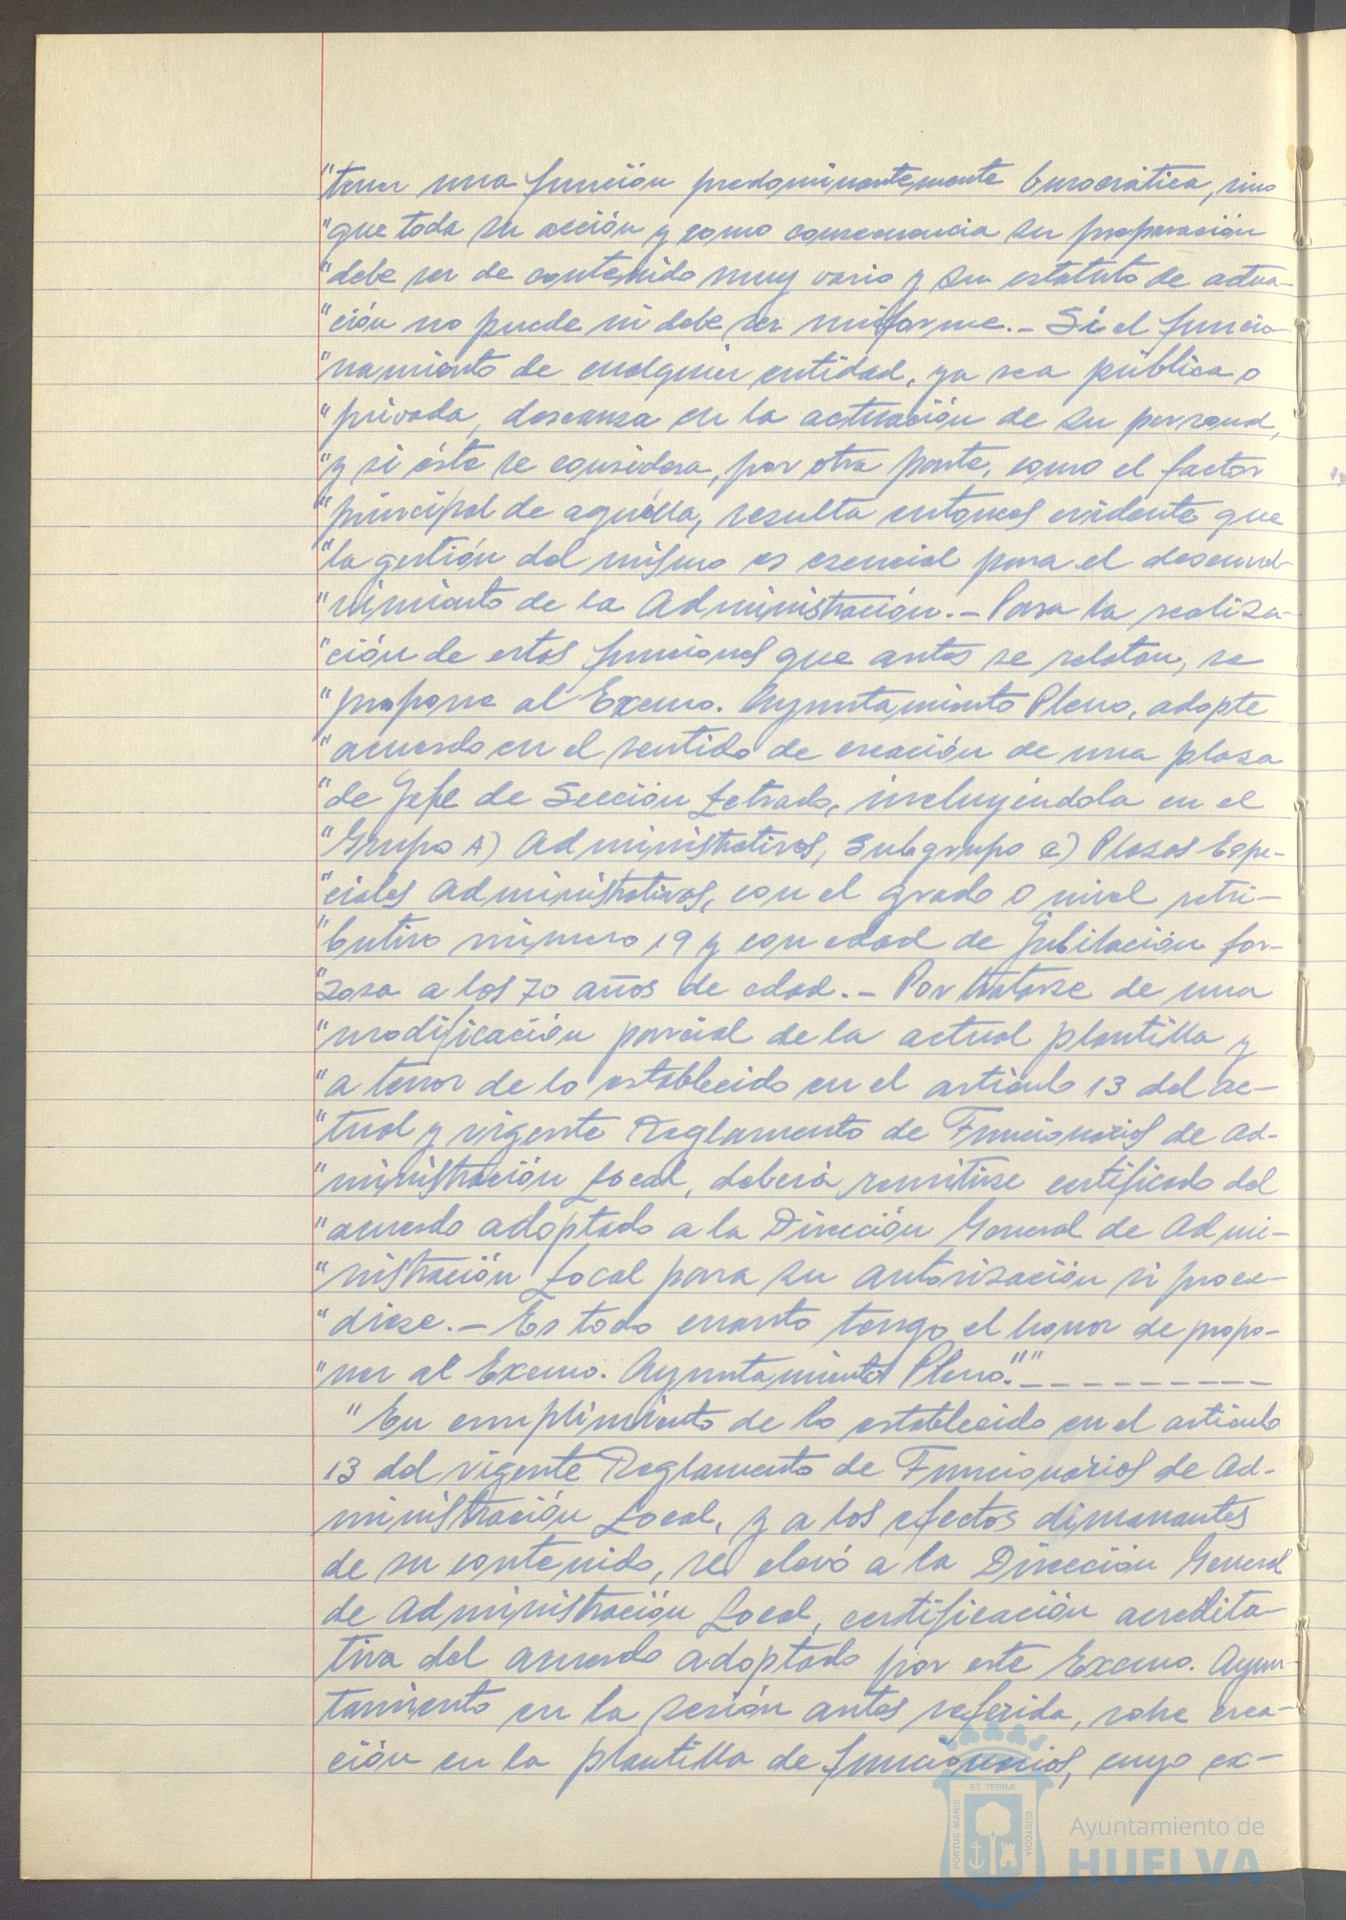 "tener una función predominantemente burocrática, sino
"que toda su acción y como consecuencia su preparación
"debe ser de contenido muy vario y su estatuto de actua-
"ción no puede ni debe ser uniforme.- Si el funcio-
"namiento de cualquier entidad, ya sea pública o
"privada, descansa en la actuación de su personal,
"y si éste se considera, por otra parte, como el factor
"principal de aquélla, resulta entonces evidente que
"la gestión del mismo es esencial para el desenvol-
"vimiento de la Administración.- Para la realiza-
"ción de estas funciones que antes se relatan, se
"propone al Excmo. Ayuntamiento Pleno, adopte
"acuerdo en el sentido de creación de una plaza
"de Jefe de Sección Letrado, incluyéndola en el
"Grupo A) Administrativos, Subgrupo a) Plazas Espe-
"ciales Administrativas, con el grado o nivel retri-
"butivo número 19 y con edad de jubilación for-
"zosa a los 70 años de edad.- Por tratarse de una
"modificación parcial de la actual plantilla y
"a tenor de lo establecido en el artículo 13 del ac-
"tual y vigente Reglamento de Funcionarios de Ad-
"ministración Local, deberá remitirse certificado del
"acuerdo adoptado a la Dirección General de Admi-
"nistración Local para su autorización si proce-
"diese.- Es todo cuanto tengo el honor de propo-
"ner al Excmo. Ayuntamiento Pleno."" - - - - - - - - -
"En cumplimiento de lo establecido en el artículo
13 del vigente Reglamento de Funcionarios de Ad-
ministración Local, y a los efectos dimanantes
de su contenido, se elevó a la Dirección General
de Administración Local, certificación acredita-
tiva del acuerdo adoptado por este Excmo. Ayun-
tamiento en la sesión antes referida, sobre crea-
ción en la plantilla de funcionarios, cuyo ex-
PORTUS MARIS
ET TERRÆ
CUSTODIA
Ayuntamiento de
HUELVA